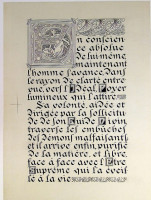 En conscience
absolue
de lui même,
maintenant
l'homme s'avance, dans
le rayon de clarté entre
ouvert, vers l'Idéal, Foyer
lumineux qui l'attire.
Sa volonté, aidée et
dirigée par la sollicitu
de de son Guide
traverse les embûches
des Démons malfaisants,
et il arrive enfin, purifié
de la matière, et libre,
face à face avec l'Être
Suprême qui l'a éveillé
à la vie